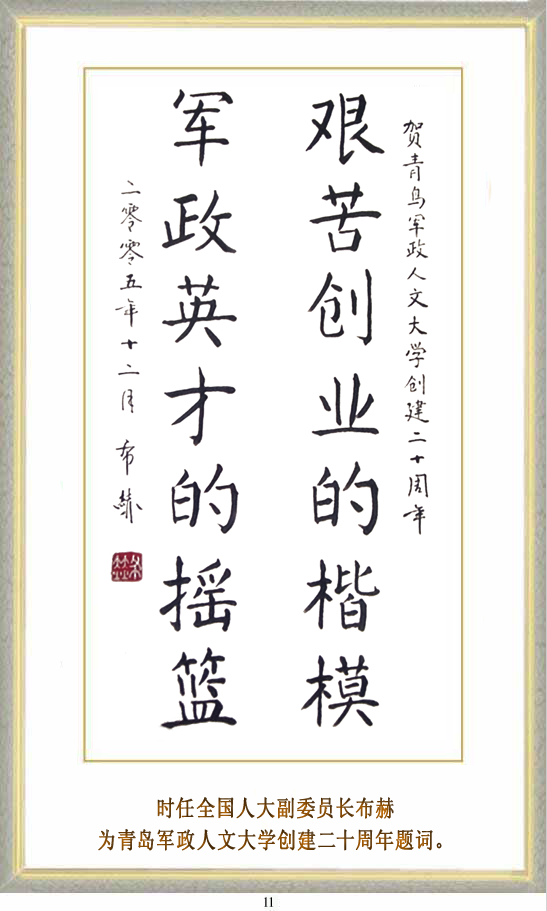 贺青岛军政人文大学创建二十周年
艰苦创业的楷模
军政英才的摇篮
二零零五年十二月 布赫
时任全国人大副委员长布赫
为青岛军政人文大学创建二十周年题词。
11